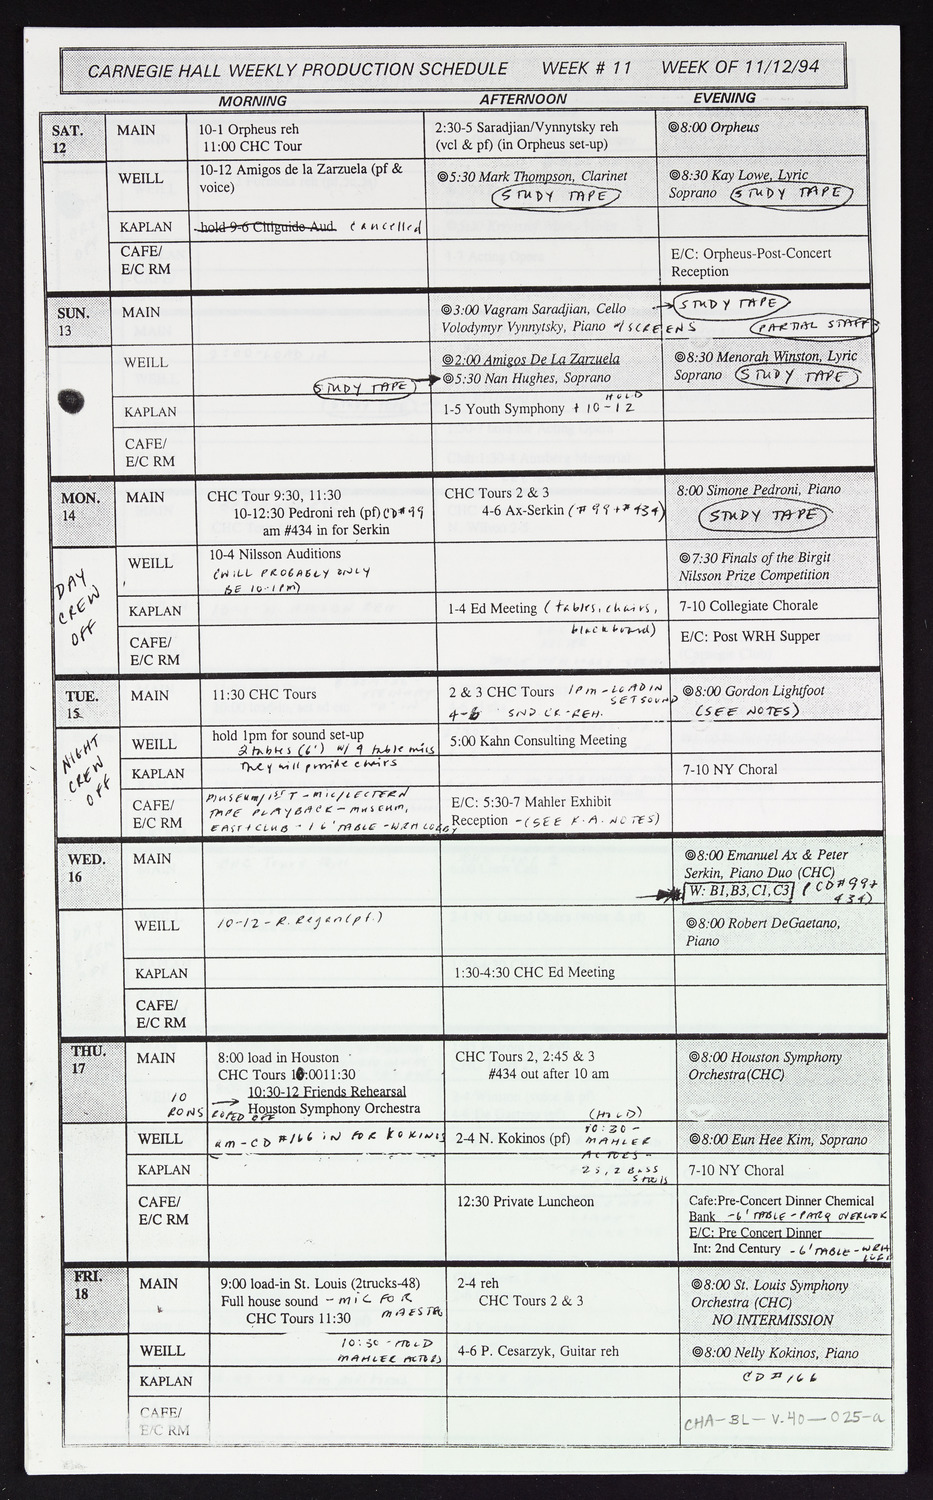 CARNEGIE HALL WEEKLY PRODUCTION SCHEDULE WEEK # 11 WEEK OF 11/12/94
MORNING AFTERNOON EVENING
SAT.
12
MAIN
10-1 Orpheus reh
11:00 CHC Tour
2:30-5 Saradjian/Vynnytsky reh
(vcl & pf) (in Orpheus set-up)
◎8:00 Orpheus
WEILL
10-12 Amigos de la Zarzuela (pf &
voice)
◎5:30 Mark Thompson, Clarinet
STUDY TAPE
◎8:30 Kay Lowe, Lyric
Soprano STUDY TAPE
KAPLAN
hold 9-6 Citiguide Aud. cancelled
CAFE/
E/C RM
E/C: Orpheus-Post-Concert
Reception
SUN.
13
MAIN
◎3:00 Vagram Saradjian, Cello
Volodymyr Vynnytsky, Piano w/SCREENS
STUDY TAPE
PARTIAL STAFF
WEILL
STUDY TAPE
◎2:00 Amigos De La Zarzuela
◎5:30 Nan Hughes, Soprano
◎8:30 Menorah Winston, Lyric
Soprano STUDY TAPE
KAPLAN
HOLD
1-5 Youth Symphony + 10-12
CAFE/
E/C RM
MON.
14
DAY
CREW
OFF
MAIN
CHC Tour 9:30, 11:30
10-12:30 Pedroni reh (pf) CD#99
am #434 in for Serkin
CHC Tours 2 & 3
4-6 Ax-Serkin (#99+#434)
8:00 Simone Pedroni, Piano
STUDY TAPE
WEILL
10-4 Nilsson Auditions
(WILL PROBABLY ONLY
BE 10-1PM)
◎7:30 Finals of the Birgit
Nilsson Prize Competition
KAPLAN
1-4 Ed Meeting (tables, chairs,
blackboard)
7-10 Collegiate Chorale
CAFE/
E/C RM
E/C: Post WRH Supper
TUE.
15
NIGHT
CREW
OFF
MAIN
11:30 CHC Tours
2 & 3 CHC Tours 1PM-LOAD IN
SET SOUND
4-6 SND CK-REH.
◎8:00 Gordon Lightfoot
(SEE NOTES)
WEILL
hold 1pm for sound set-up
2 tables (6') w/ 4 table mics
They will provide chairs
5:00 Kahn Consulting Meeting
KAPLAN
7-10 NY Choral
CAFE/
E/C RM
MUSEUM/1ST - MIC/LECTERN
TAPE PLAYBACK - MUSEUM,
EAST+CLUB - 1 6' TABLE - WRH LOBBY
E/C: 5:30-7 Mahler Exhibit
Reception -(SEE K.A. NOTES)
WED.
16
MAIN
◎8:00 Emanuel Ax & Peter
Serkin, Piano Duo (CHC)
W: B1,B3,C1,C3 (CD#99+
434)
WEILL
10-12 - R. Regen (pf.)
◎8:00 Robert DeGaetano,
Piano
KAPLAN
1:30-4:30 CHC Ed Meeting
CAFE/
E/C RM
THU.
17
MAIN
8:00 load in Houston
CHC Tours 10:0011:30
10:30-12 Friends Rehearsal
Houston Symphony Orchestra
10
ROWS ROPED OFF
CHC Tours 2, 2:45 & 3
#434 out after 10 am
◎8:00 Houston Symphony
Orchestra(CHC)
WEILL
am-CD #166 IN FOR KOKINOS
2-4 N. Kokinos (pf)
(HOLD)
10:30-
MAHLER
ACTORS-
2 Bass
Stools
◎8:00 Eun Hee Kim, Soprano
KAPLAN
7-10 NY Choral
CAFE/
E/C RM
12:30 Private Luncheon
Cafe:Pre-Concert Dinner Chemical
Bank -6' TABLE-PARQ OVERLOOK
E/C: Pre Concert Dinner
Int: 2nd Century -6' TABLE-WRH
FRI.
18
MAIN
9:00 load-in St. Louis (2trucks-48)
Full house sound - MIC FOR
MAESTRO
CHC Tours 11:30
2-4 reh
CHC Tours 2 & 3
◎8:00 St. Louis Symphony
Orchestra (CHC)
NO INTERMISSION
WEILL
10:30 - HOLD
MAHLER ACTORS
4-6 P. Cesarzyk, Guitar reh
◎8:00 Nelly Kokinos, Piano
CD #166
KAPLAN
CAFE/
E/C RM
CHA-BL-V.40-025-a